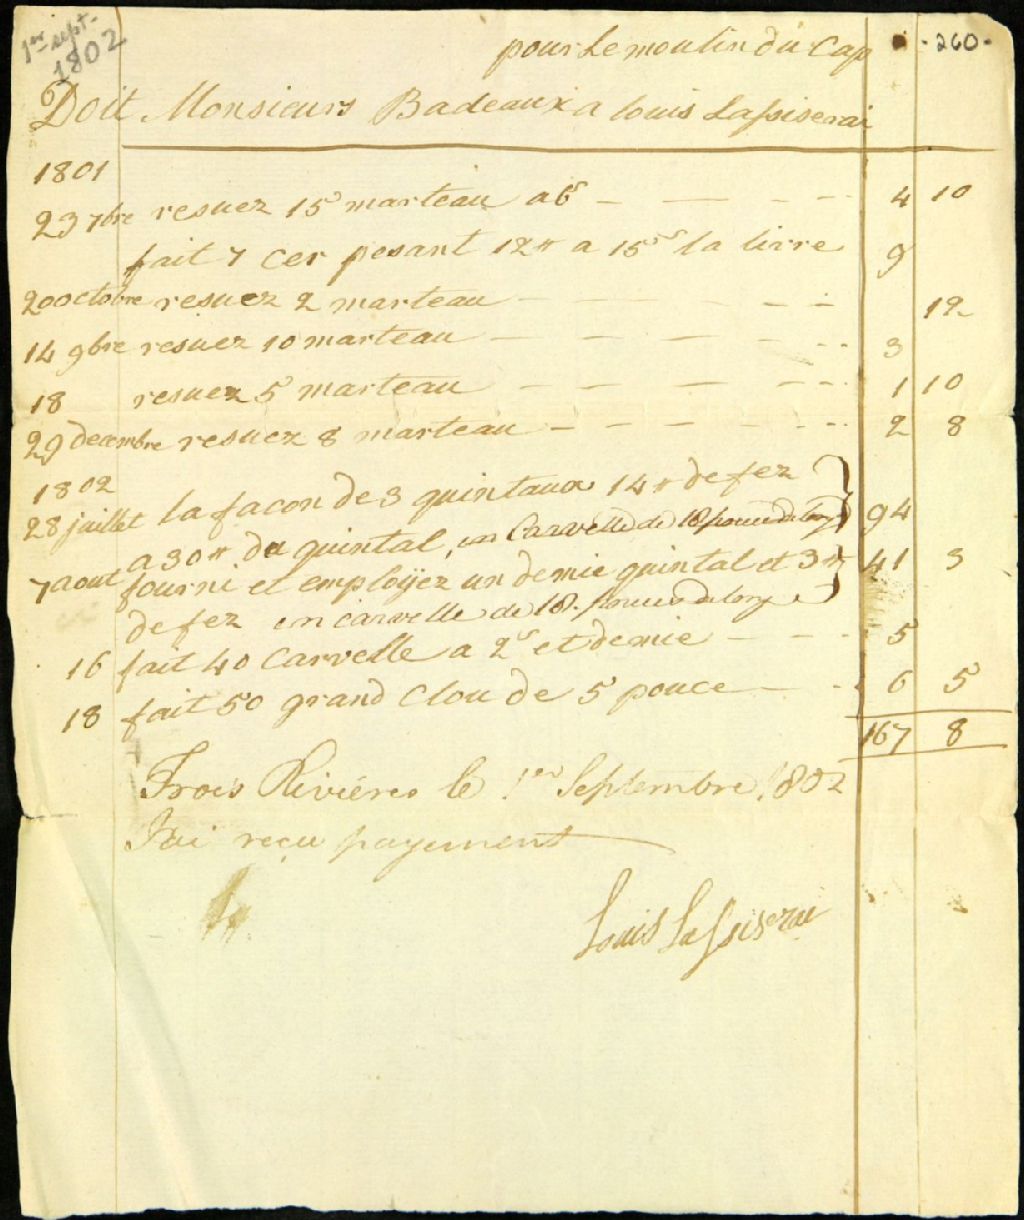 1er sept-
1802
pour Le moulin du Cap
- 260 -
Doit Monsieurs Badeaux a Louis Lassiserai
1801
23 7bre resuez 15 marteau a 6s 4 10
fait 7 cer pesant 12tt a 15s la livre 9
20 octobre resuez 2 marteau 12
14 9bre resuez 10 marteau 3
18 resuez 5 marteau 1 10
29 decembre resuez 8 marteau 2 8
1802
28 juillet la facon de 3 quintaux 14tt de fez
a 30tt du quintal, en Carvelle de 18 pouces de long 94
7 aout fourni et employez un demie quintal et 3tt 41 3
de fez en carvelle de 18. pouces de long
16 fait 40 Carvelle a 2s et demie 5
18 fait 50 grand Clou de 5 pouce 6 5
167 8
Trois Riviéres le 1er Septembre 1802
J'ai reçu payement
Louis Lassiserai